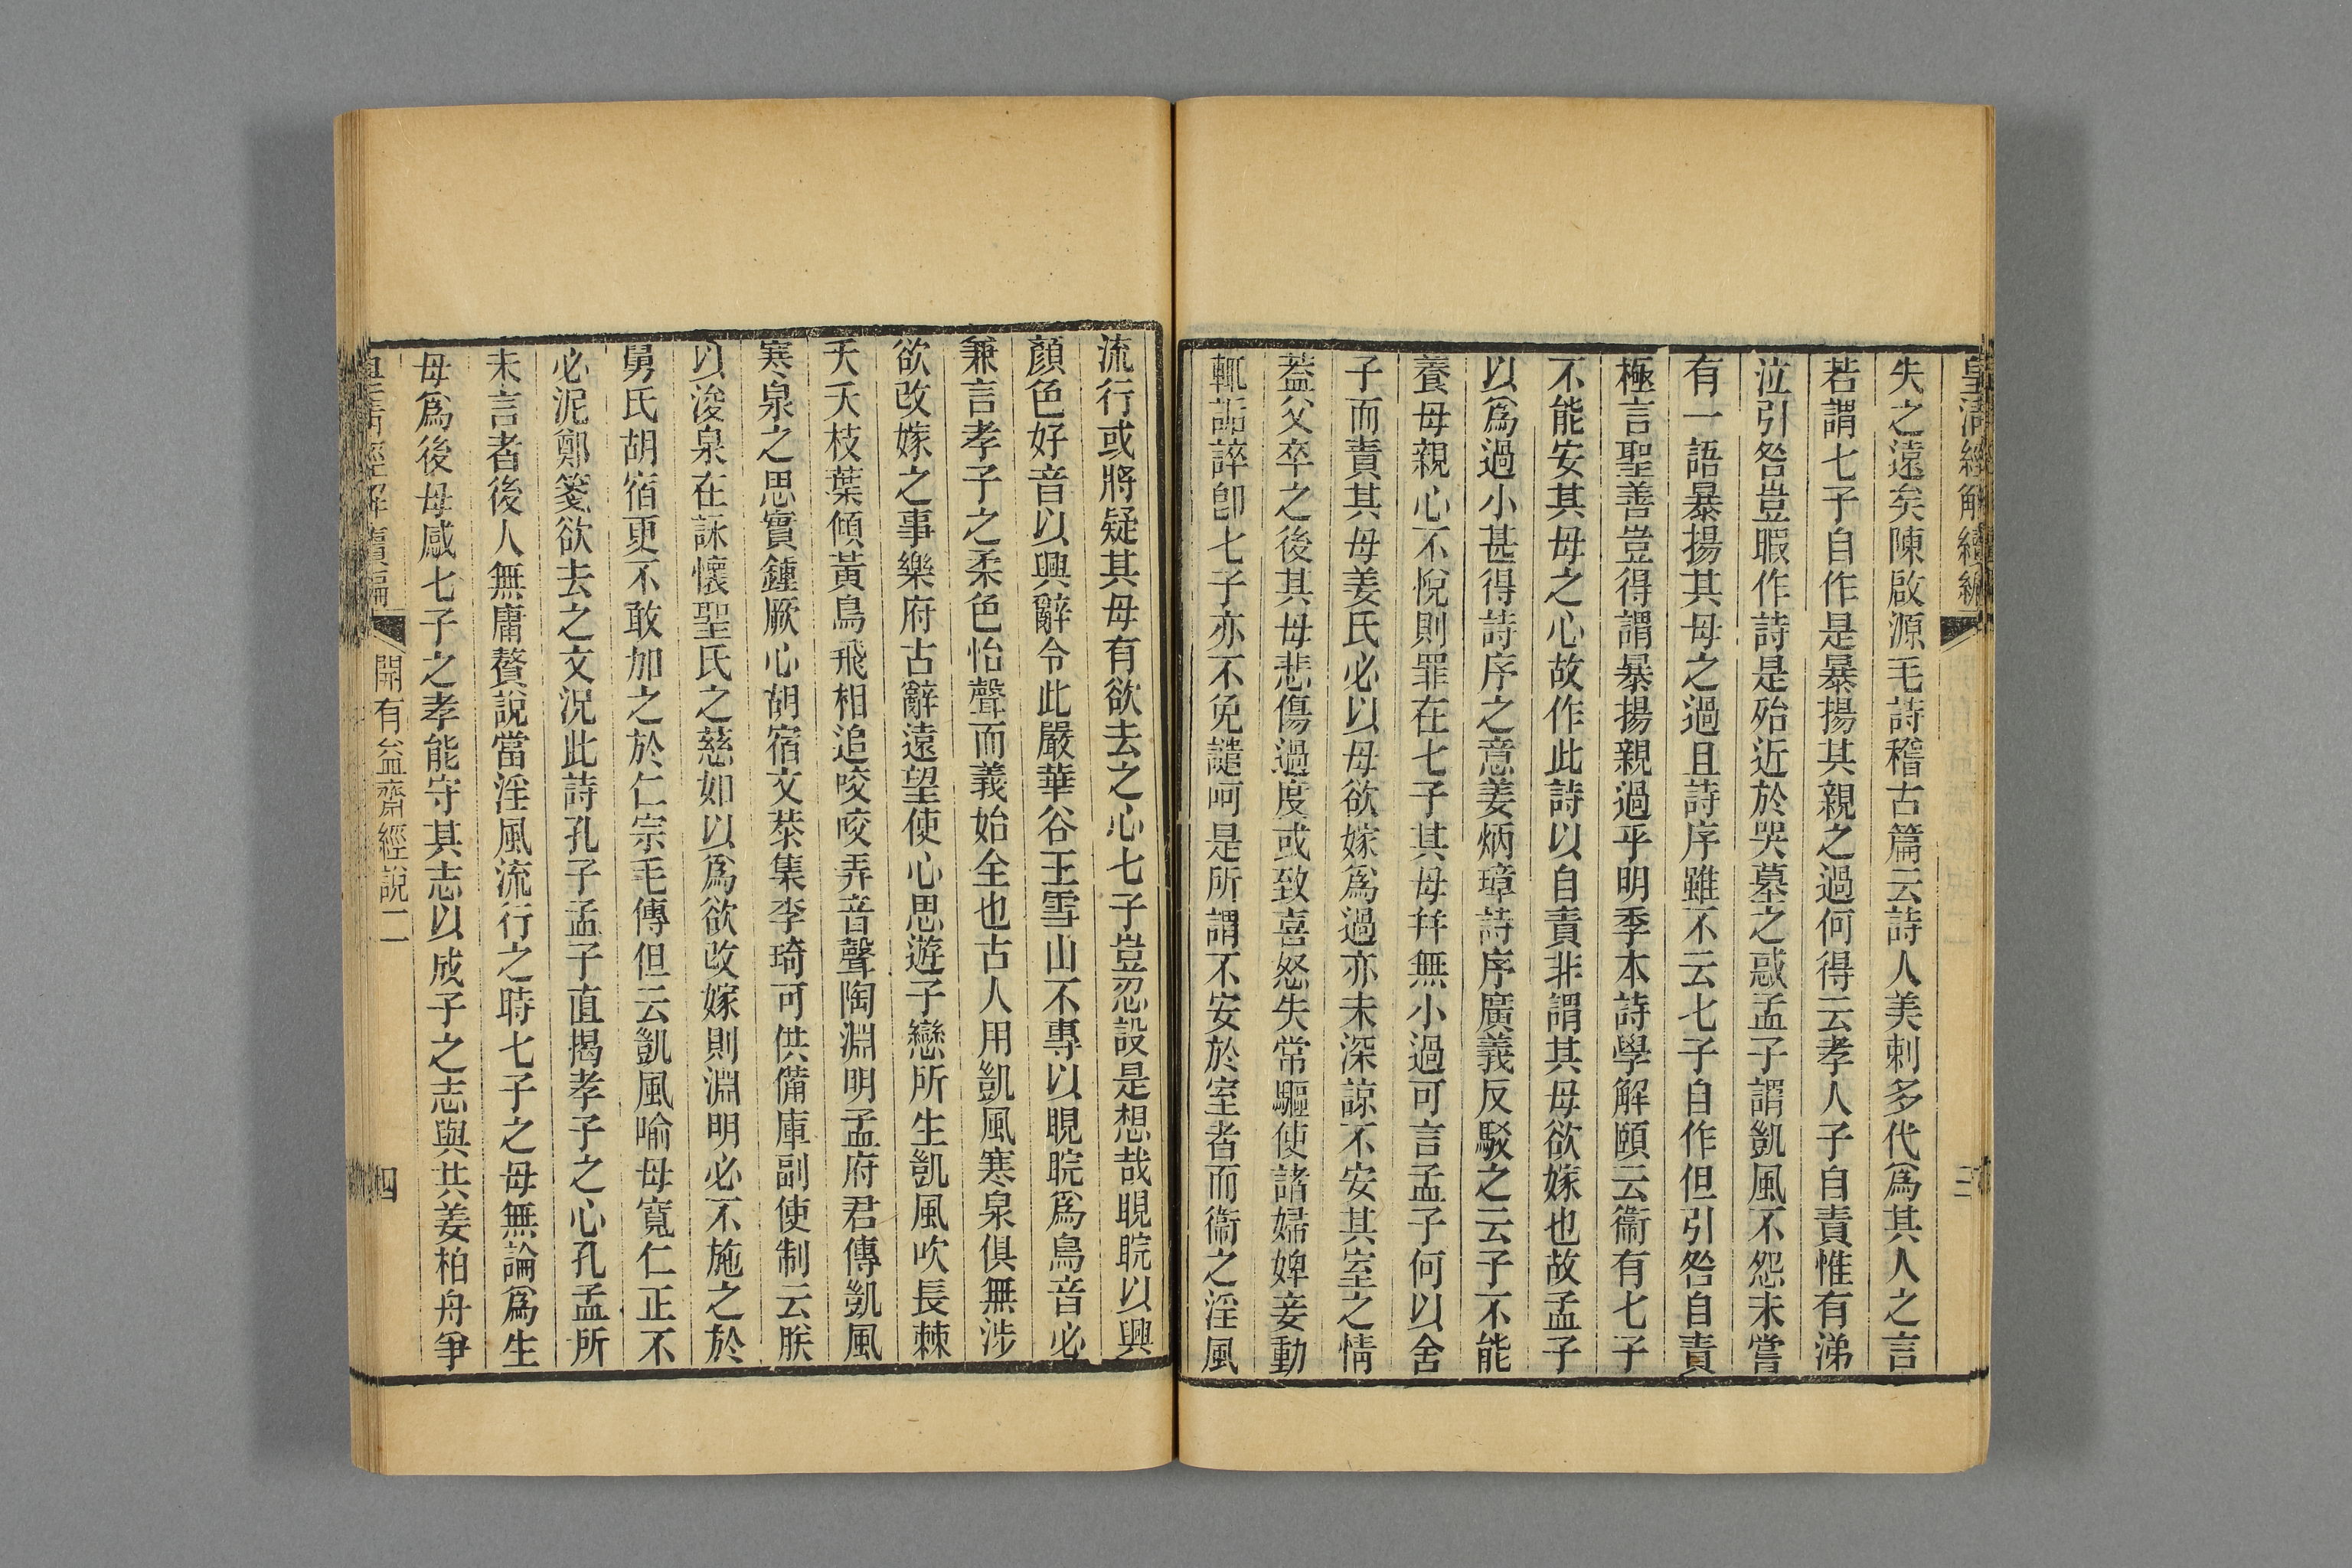 皇清經解續編
三
失之遠矣陳啟源毛詩稽古篇云詩人美刺多代爲其人之言
若謂七子自作是暴揚其親之過何得云孝人子自責惟有涕
泣引咎豈暇作詩是殆近於哭墓之惑孟子謂凱風不怨未嘗
有一語暴揚其母之過且詩序雖不云七子自作但引咎自責
極言聖善豈得謂暴揚親過乎明季本詩學解頤云衞有七子
不能安其母之心故作此詩以自責非謂其母欲嫁也故孟子
以爲過小甚得詩序之意姜炳璋詩序廣義反駁之云子不能
養母親心不悅則罪在七子其母幷無小過可言孟子何以舍
子而責其母姜氏必以母欲嫁爲過亦未深諒不安其室之情
葢父卒之後其母悲傷過度或致喜怒失常驅使諸婦婢妾動
輒詬誶卽七子亦不免譴呵是所謂不安於室者而衞之淫風
流行或將疑其母有欲去之心七子豈忍設是想哉睍睆以興
顏色好音以興辭令此嚴華谷王雪山不專以睍睆爲鳥音必
兼言孝子之柔色怡聲而義始全也古人用凱風寒泉俱無涉
欲改嫁之事樂府古辭遠望使心思遊子戀所生凱風吹長棘
夭夭枝葉傾黃鳥飛相追咬咬弄音聲陶淵明孟府君傳凱風
寒泉之思實鍾厥心胡宿文恭集李琦可供備庫副使制云朕
以浚泉在詠懷聖氏之慈如以爲欲改嫁則淵明必不施之於
舅氏胡宿更不敢加之於仁宗毛傳但云凱風喻母寬仁正不
必泥鄭箋欲去之文況此詩孔子孟子直揭孝子之心孔孟所
未言者後人無庸贅說當淫風流行之時七子之母無論爲生
母爲後母感七子之孝能守其志以成子之志與共姜柏舟爭
皇清經解續編
開有益齋經說二
四